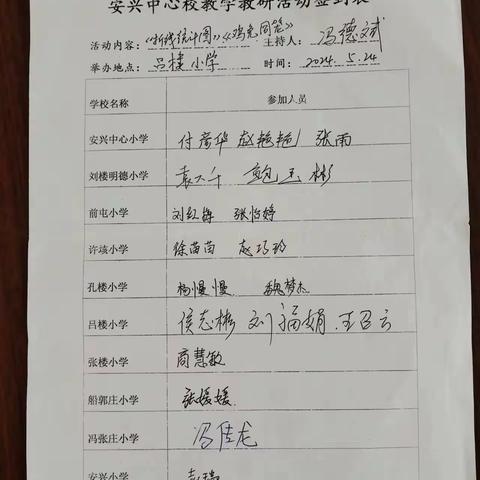 安兴中心校教学教研活动签到表
活动内容：《折线统计图》《鸡兔同笼》 主持人：冯德斌
举办地点：吕楼小学 时间：2024.5.24
学校名称 参加人员
安兴中心小学 付彦华 赵艳艳 张雨
刘楼明德小学 袁大千 鲍玉彬
前屯小学 刘红梅 张怡婷
许垓小学 徐苗苗 赵巧玲
孔楼小学 杨慢慢 魏梦杰
吕楼小学 侯志彬 刘福娟 王召云
张楼小学 商慧敏
船郭庄小学 张媛媛
冯张庄小学 冯佳龙
安兴小学